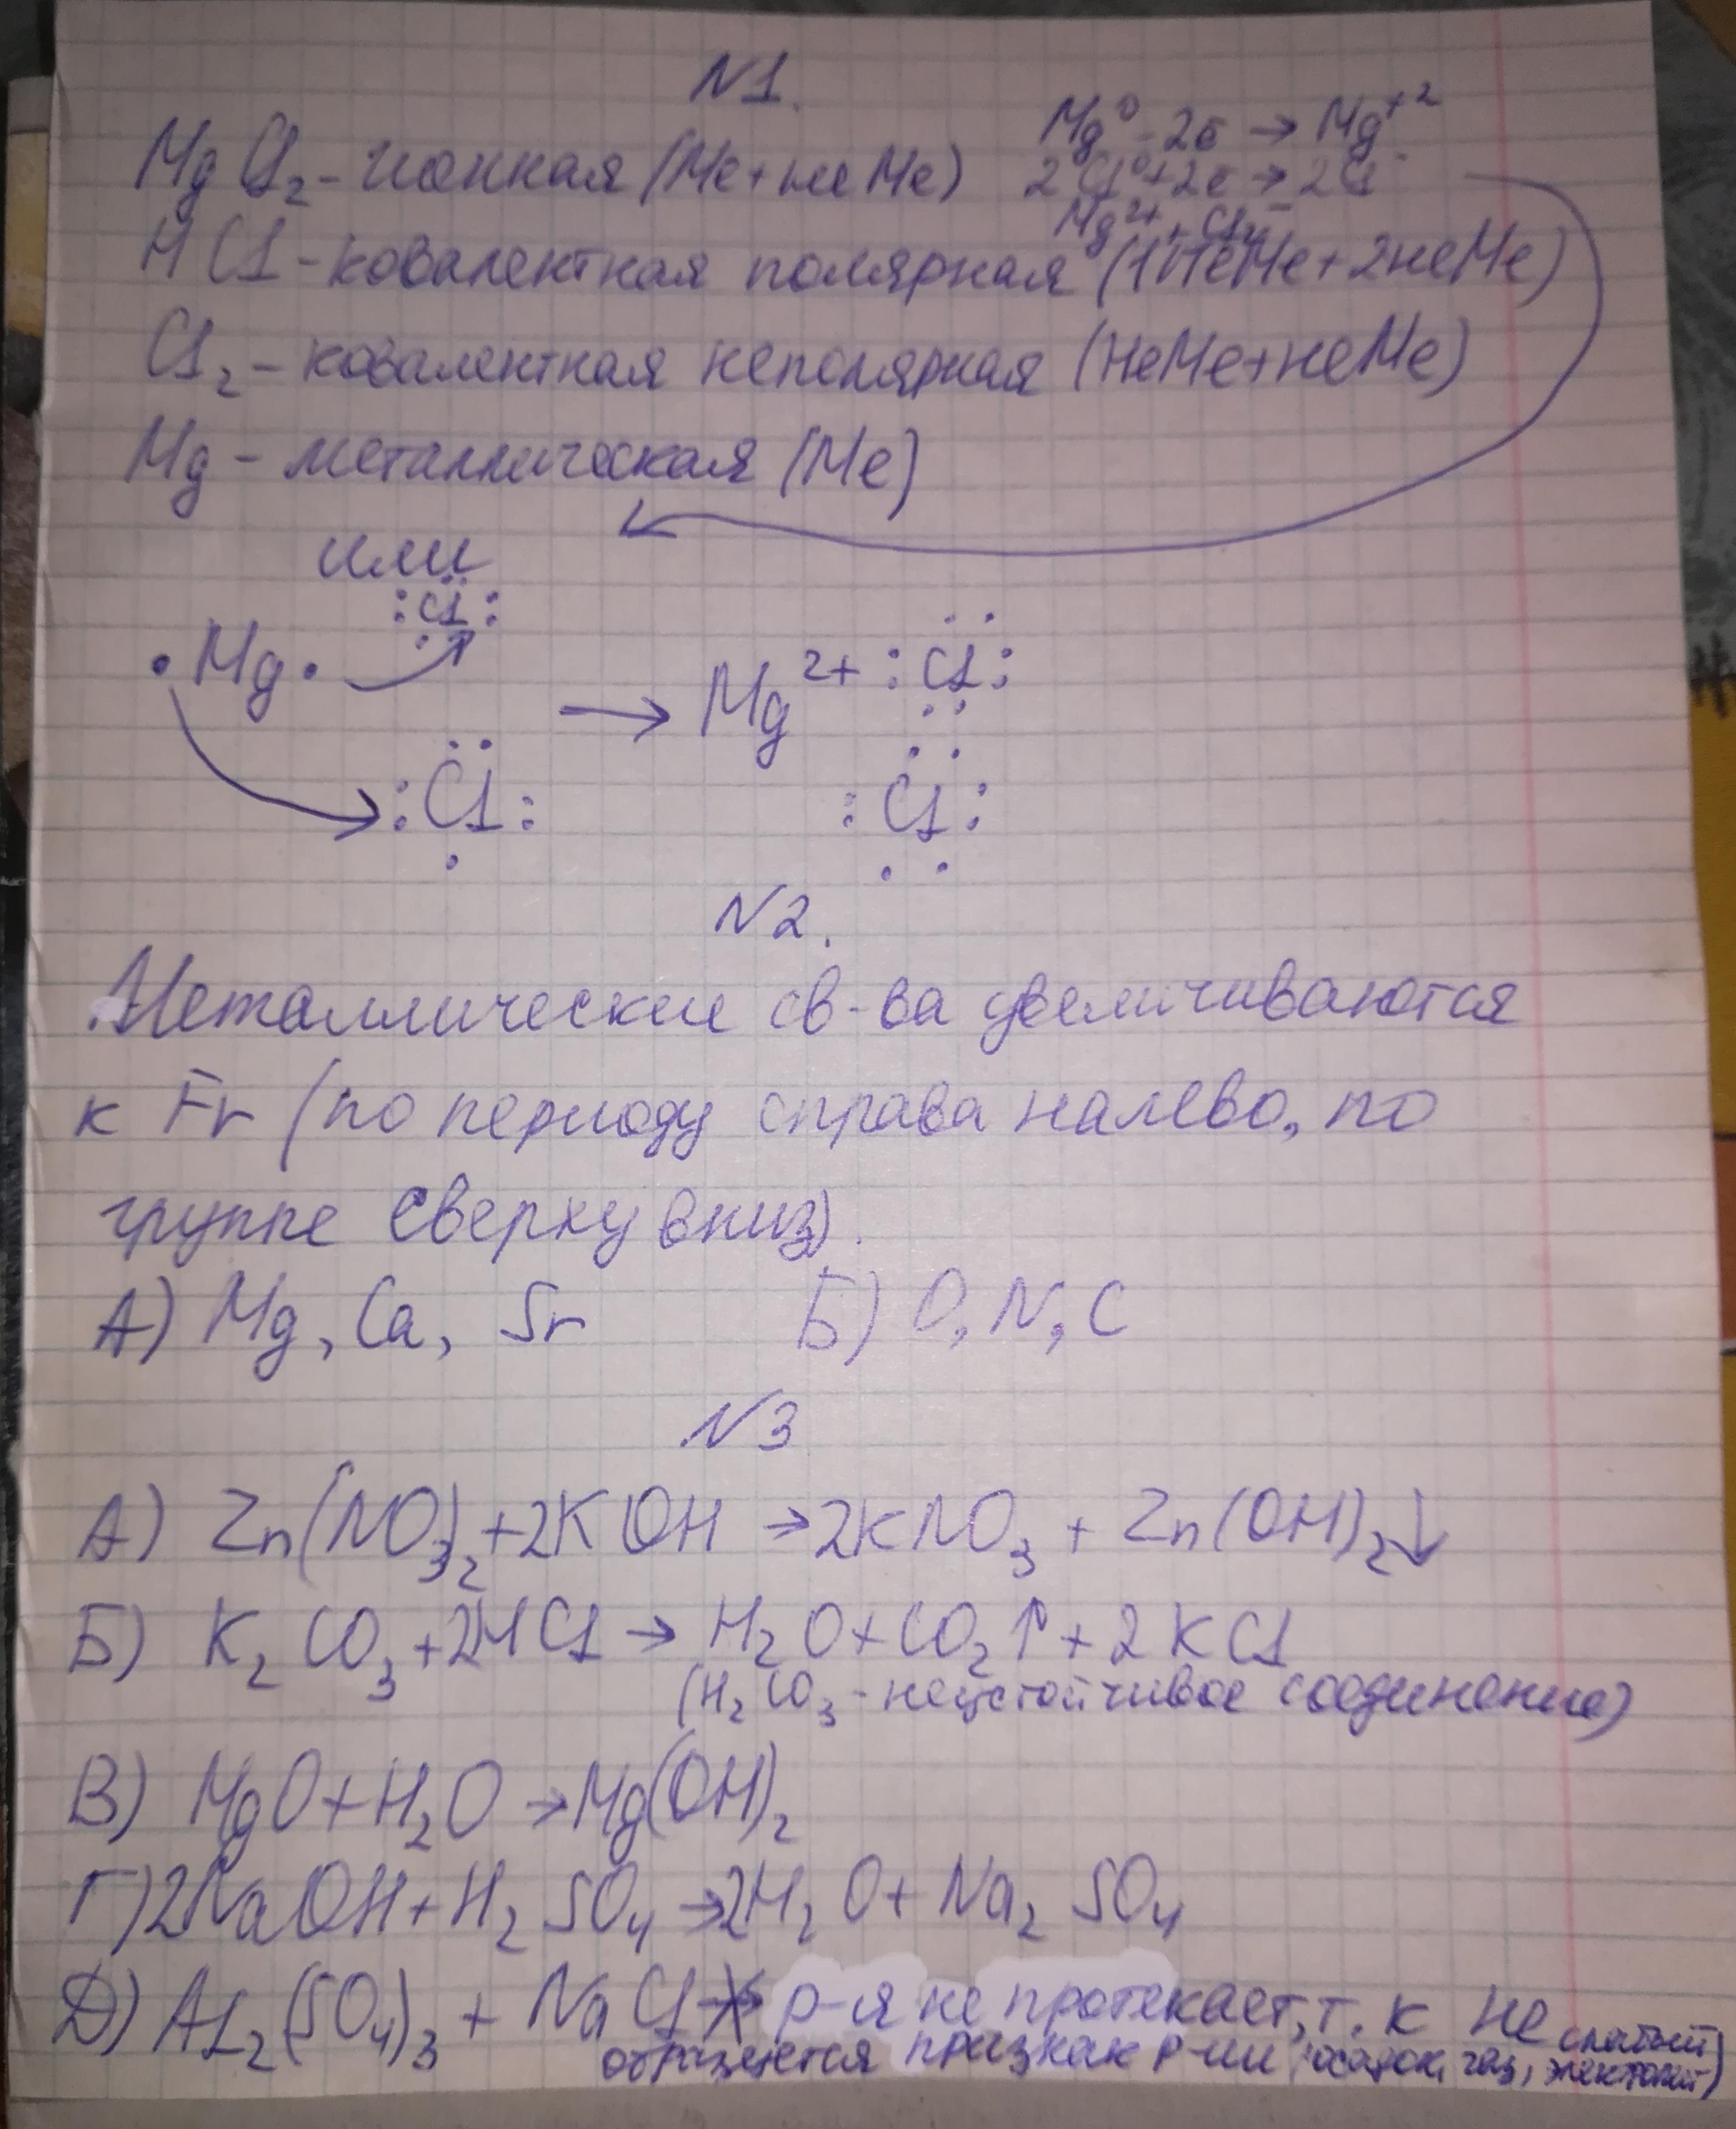 N1.
MgCl₂ - ионная (Me + неMe) Mg⁰ - 2ē → Mg⁺²
2Cl⁰ + 2ē → 2Cl⁻
Mg²⁺, Cl⁻
HCl - ковалентная полярная (1неMe + 2неMe)
Cl₂ - ковалентная неполярная (неMe + неMe)
Mg - металлическая (Me)
или
:Cl:
·Mg· → Mg²⁺ :Cl:
:Cl: :Cl:
N2.
Металлические св-ва увеличиваются
к Fr (по периоду справа налево, по
группе сверху вниз).
А) Mg, Ca, Sr Б) O, N, C
N3
А) Zn(NO₃)₂ + 2KOH → 2KNO₃ + Zn(OH)₂↓
Б) K₂CO₃ + 2HCl → H₂O + CO₂↑ + 2KCl
(H₂CO₃ - неустойчивое соединение)
В) MgO + H₂O → Mg(OH)₂
Г) 2NaOH + H₂SO₄ → 2H₂O + Na₂SO₄
Д) Al₂(SO₄)₃ + NaCl ↛ р-я не протекает, т. к не
образуется признак р-ии (осадок, газ, слабый электролит)